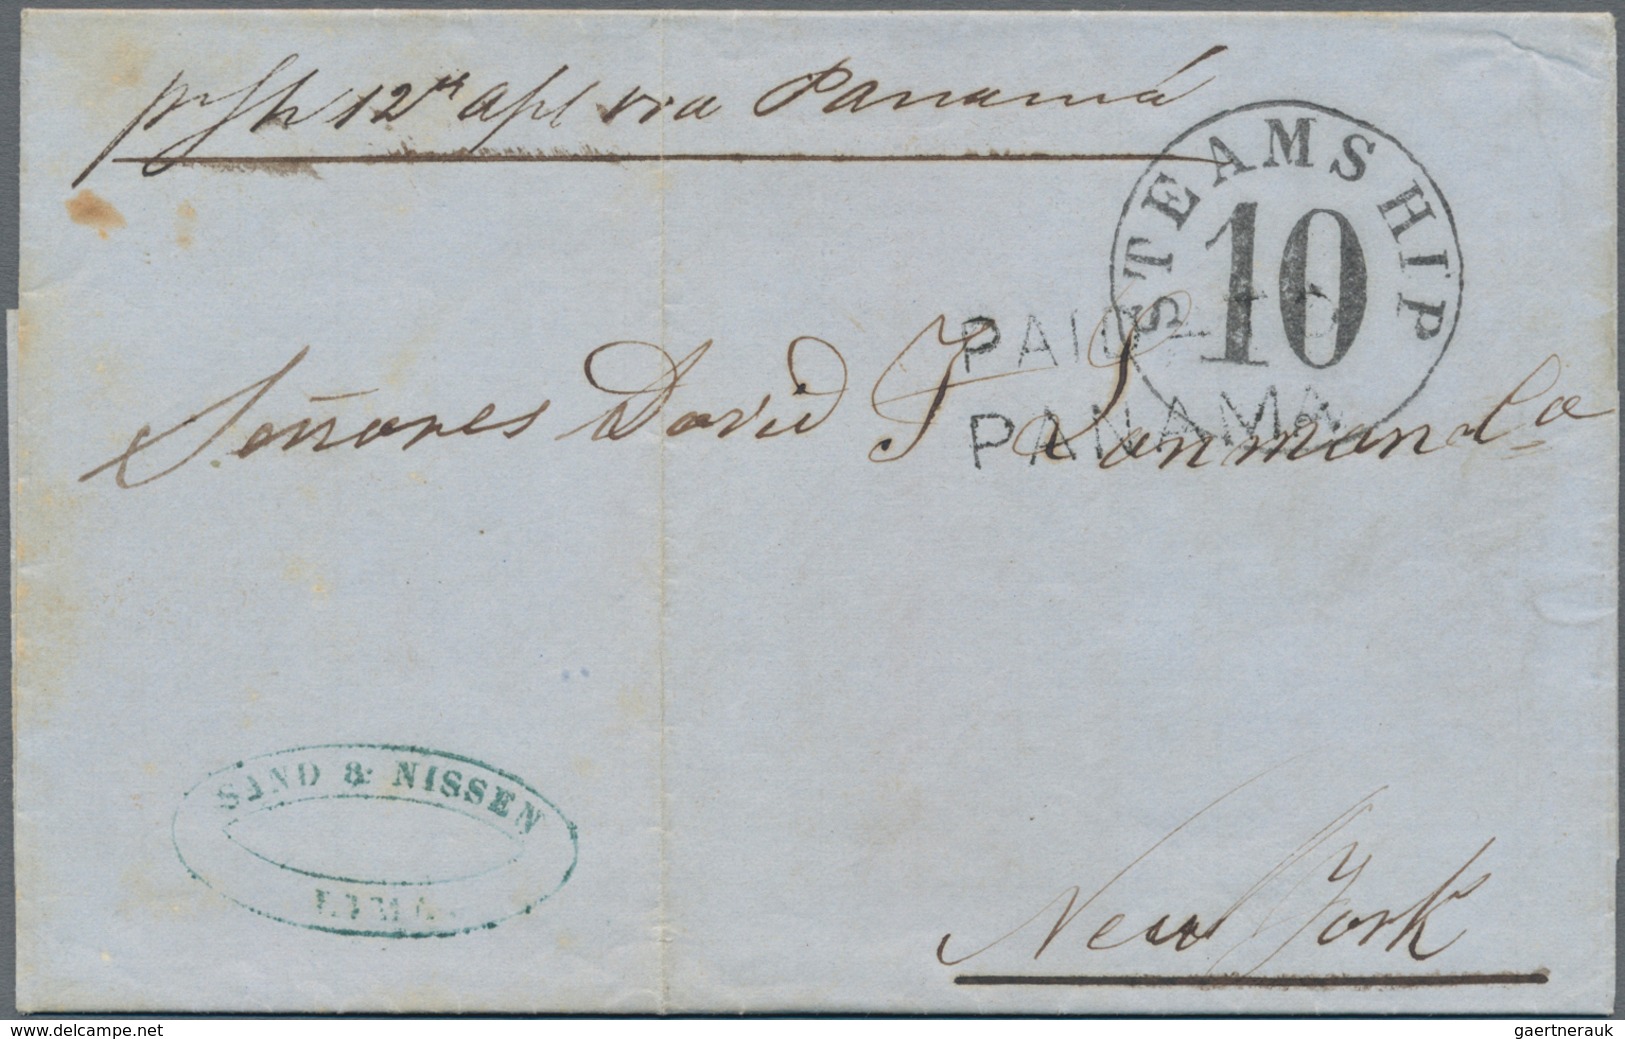 12 apl via Panamá
STEAMSHIP
10
PAID TO
PANAMA
Señores David
New York
SAND & NISSEN
LIMA
www.delcampe.net
gaertnerauk